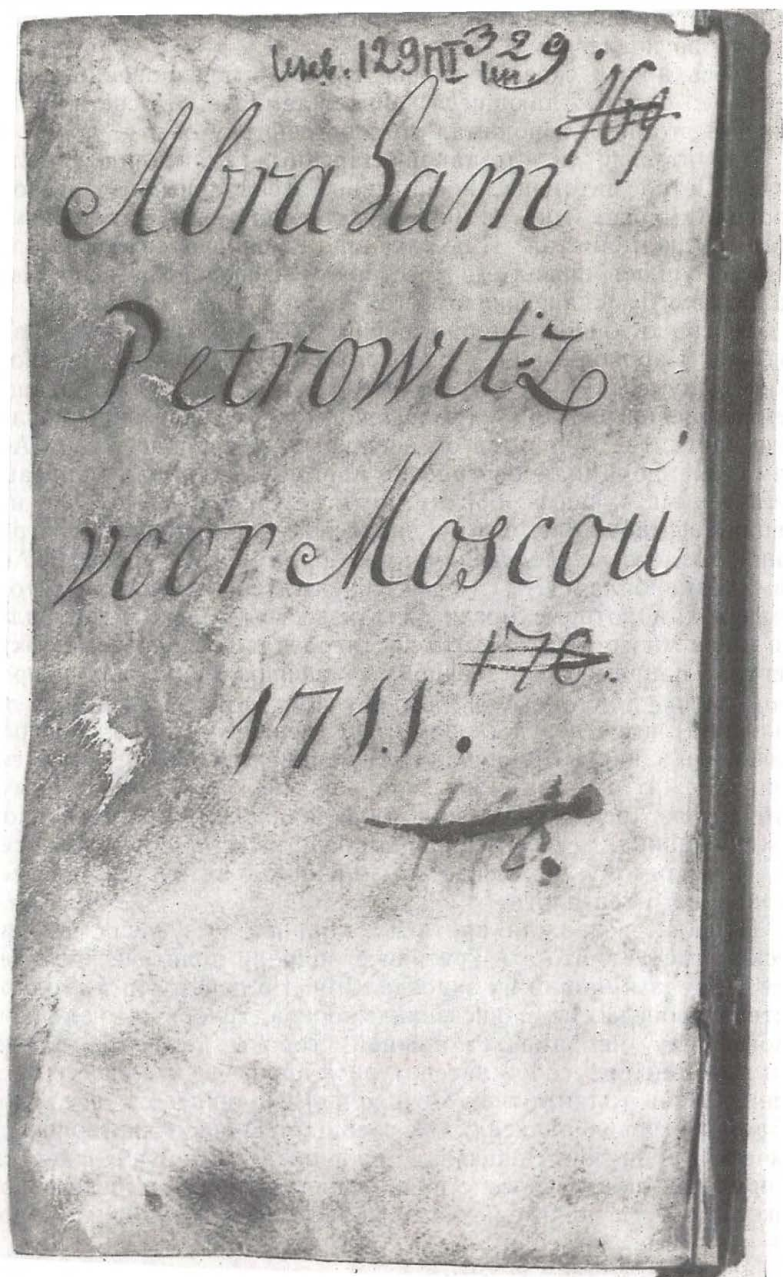 129 III 329.
169
Abraham
Petrowitz
voor Moscou
176.
1711.